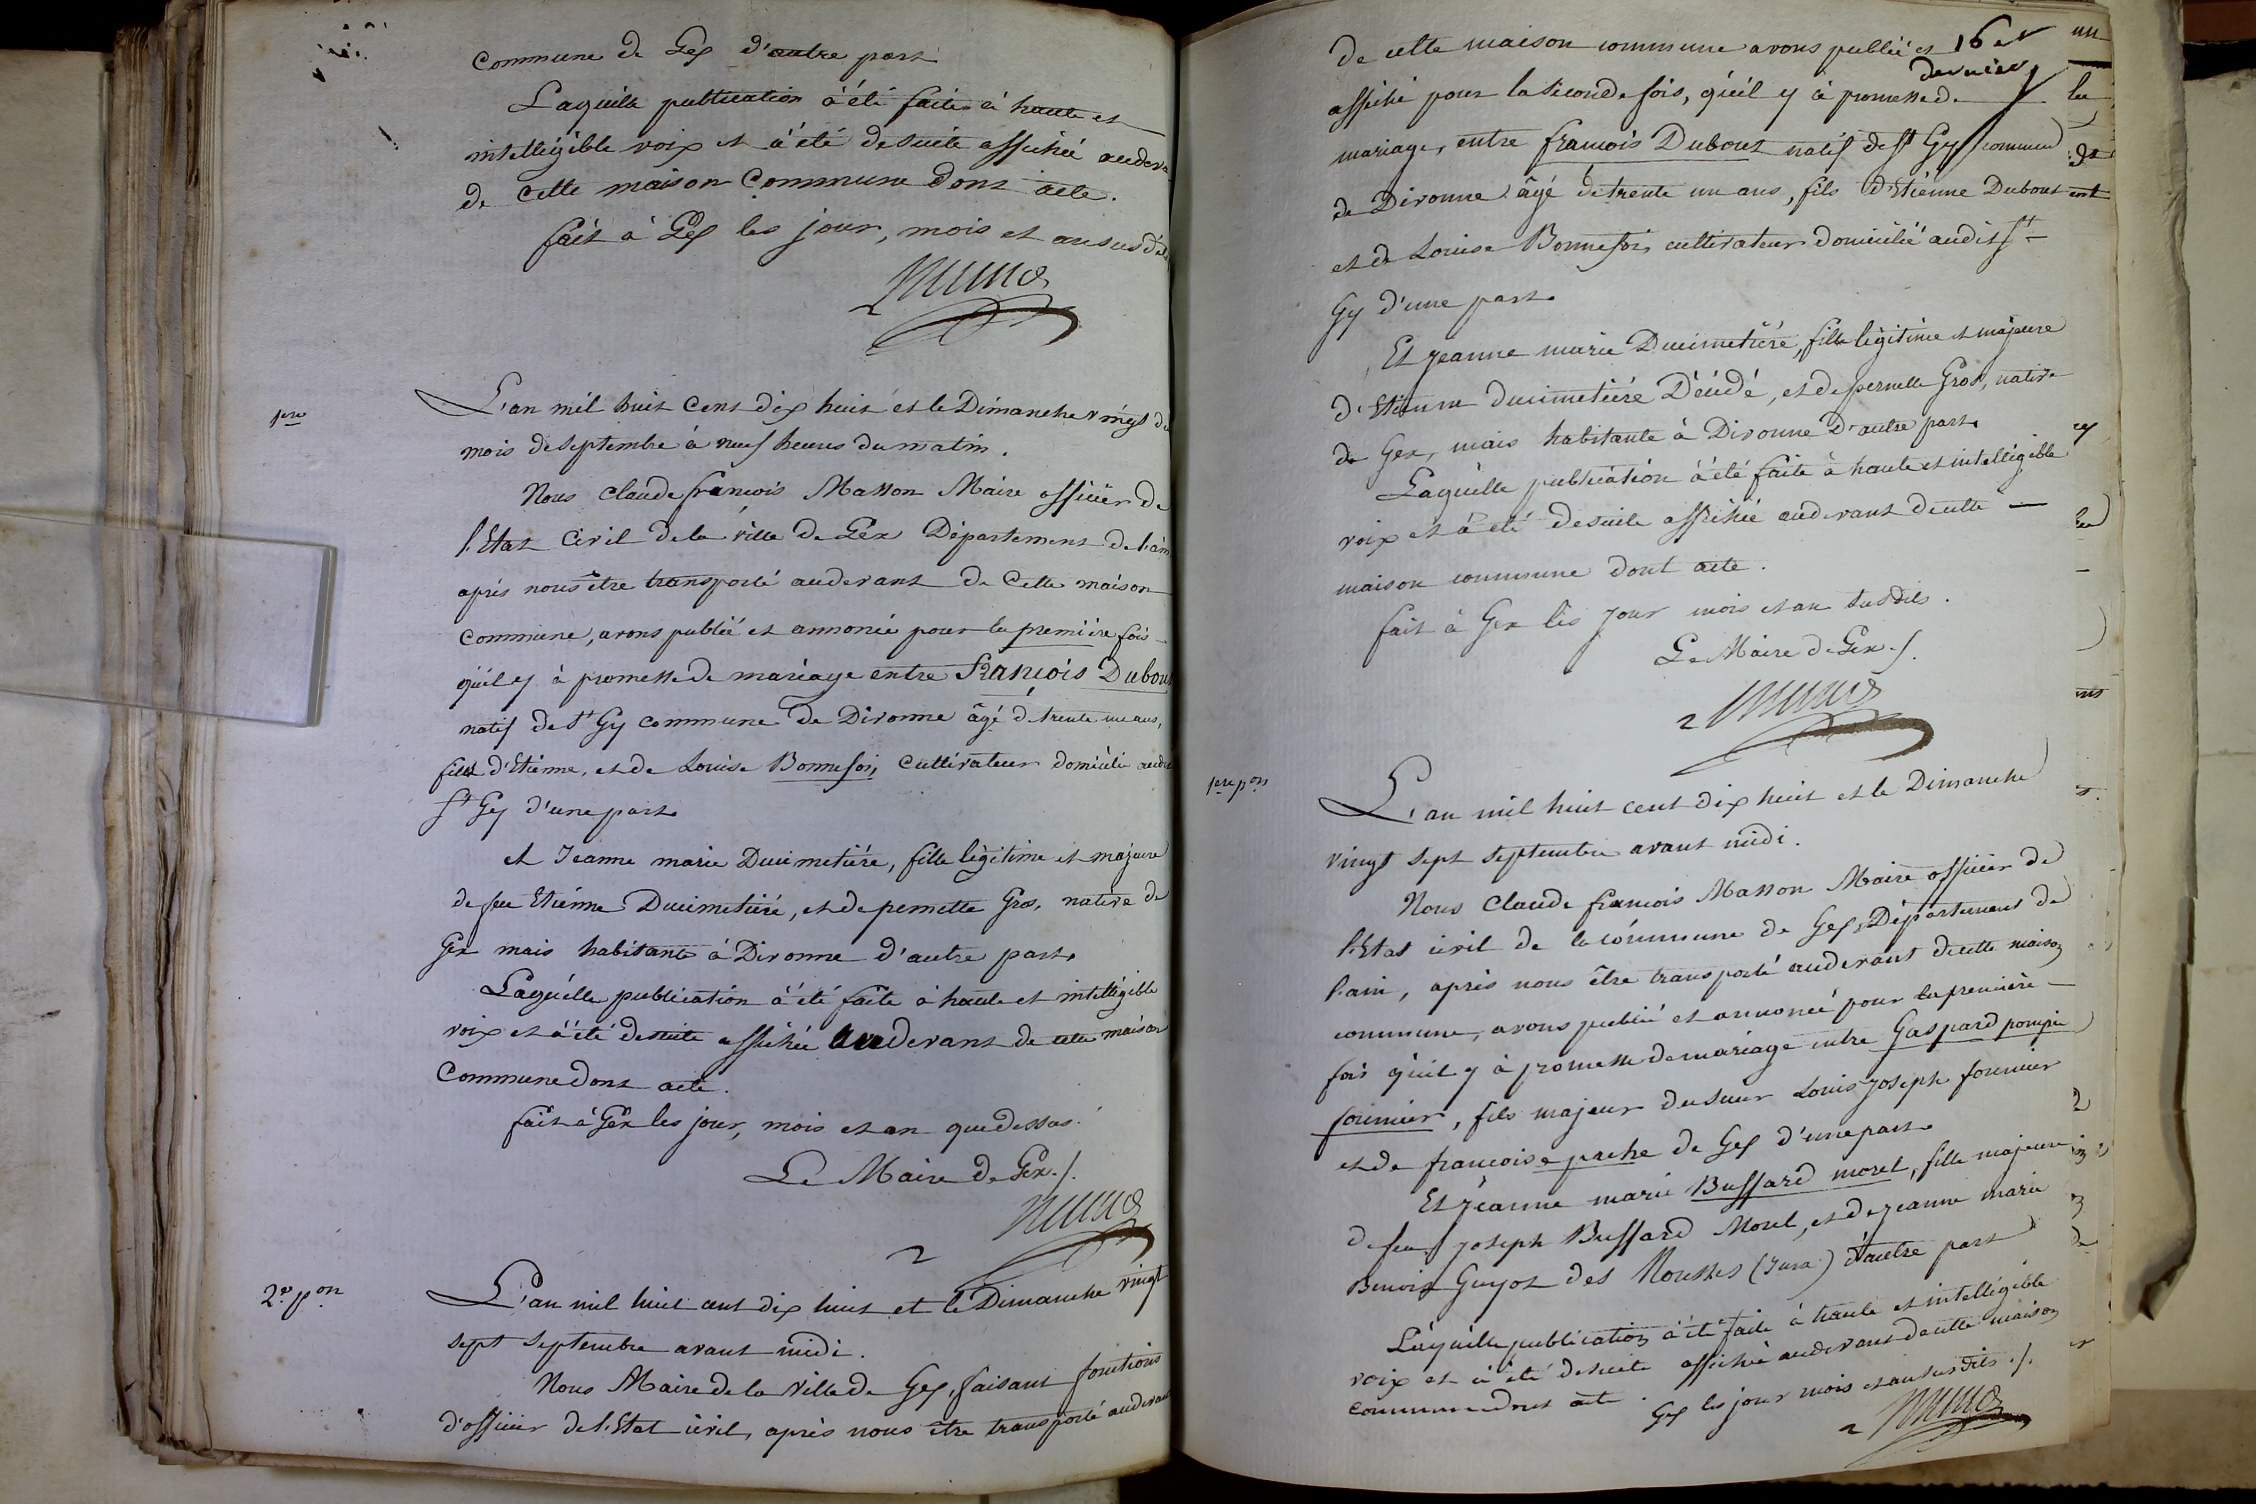 commune de Gex d'autre part
Laquelle publication à été faite à haute et
intelligible voix et à été de suite affichée audeva
de cette maison Commune dont acte.
fait à Gex les jour, mois et an susd
1ere
L'an mil huit cent dix huit et le Dimanche vingt du
mois de septembre à neuf heures du matin.
Nous Claude françois Masson Maire officier de
l'Etat Civil de la ville de Gex Département de l'ain
après nous être transporté audevant de Cette maison
Commune, avons publié et annoncé pour la première fois
qu'il y à promesse de mariage entre François Dubout
natif de St Gy commune de Divonne âgé de trente un ans,
fils d'Etienne, et de Louise Bonnefoi, cultivateur domicilié audit
St Gy d'une part
et Jeanne marie Ducimetière, fille légitime et majeure
de feu Etiénne Ducimetiére, et de pernette Gros, native de
Gex mais habitante à Divonne d'autre part.
Laquélle publication à été faite à haute et intelligible
voix et à été de suite affichée audevant de cette maison
Commune dont acte.
fait à Gex les jour, mois et an que dessus.
Le Maire de Gex ./.
2e pon
L'an mil huit cent dix huit et le Dimanche vingt
sept septembre avant midi.
Nous Maire de la ville de Gex, faisant fonctions
d'officier de l'Etat civil, après nous être transporté audevant
de cette maison commune avons publié et 16 et
dernier
affiché pour la séconde fois, qu'il y à promesse de
mariage, entre françois Dubout natif de St Gy commune
de Divonne âgé de trente un ans, fils d'Etiénne Dubout
et de Louise Bonnefoi, cultivateur domicilié audit St
Gy d'une part.
Et jeanne marie Ducimetière, fille légitime et majeure
d'Etienne ducimetiére Décédé, et de pernette Gros, native
de Gex, mais habitante à Divonne D'autre part.
Laquélle publication à été faite à haute et intelligible
voix et à été de suite affichée audevant de cette
maison commune dont acte.
fait à Gex les jour mois et an susdits.
Le Maire de Gex ./.
1ere pon
L'an mil huit cent dix huit et le Dimanche
vingt sept septembre avant midi.
Nous Claude françois Masson Maire officier de
l'Etat civil de la commune de Gex, Département de
l'ain, après nous être transporté audevant de cette maison
commune, avons publié et annoncé pour la première
fois qu'il y à promesse de mariage entre Gaspard pompée
fournier, fils majeur du sieur Louis joseph fournier
et de françoise pache de Gex d'une part.
Et jeanne marie Buffard morel, fille majeure
de feu joseph Buffard Morel, et de jeanne marie
Benoit Guyot des Mousses (Jura) d'autre part
Laquélle publication à été faite à haute et intelligible
voix et à été de suite affichée audevant de cette maison
commune dont acte.
Gex les jour mois et an susdits ./.